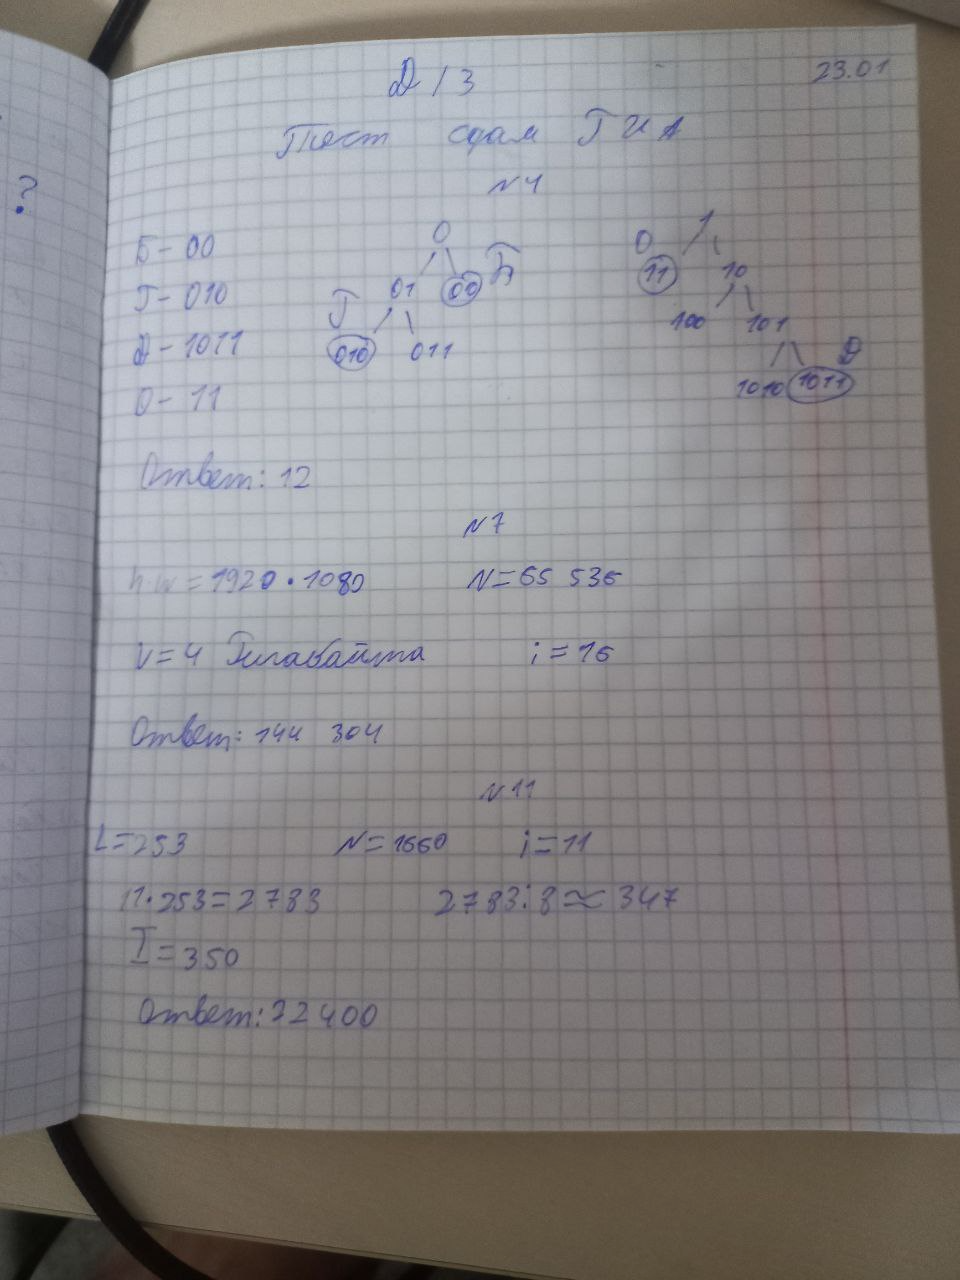 Д/З 23.01
Тест сдам ГИА
N4
Б - 00
Г - 010
Д - 1011
О - 11
0
01 00 Б
Г
010 011
1
О
11 10
100 101
Д
1010 1011
Ответ: 12
N7
h·w = 1920 · 1080 N = 65 536
V = 4 Гигабайта i = 16
Ответ: 144 304
N11
L = 253 N = 1660 i = 11
11·253 = 2783 2783:8 ≈ 347
I = 350
Ответ: 22400